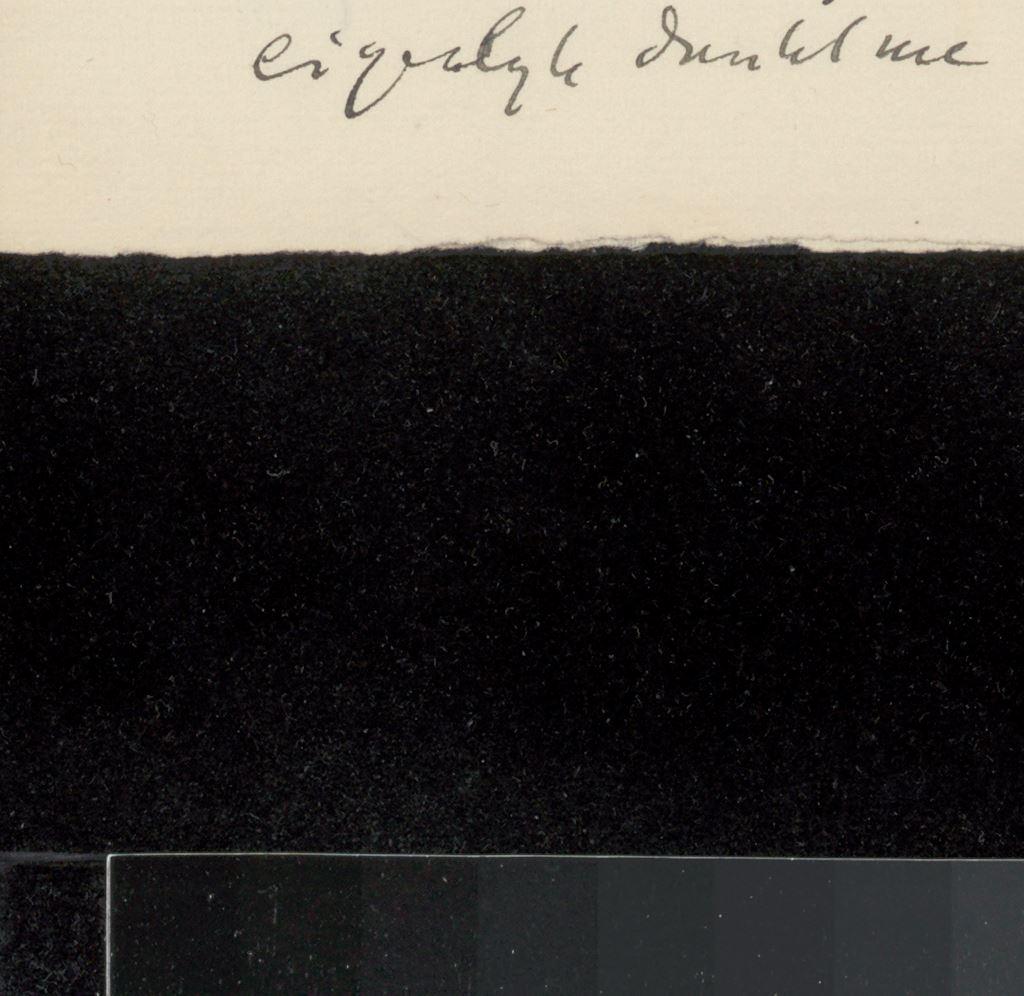 eigenlyk dunkt me